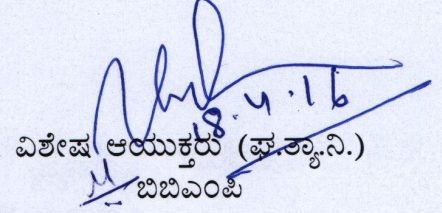 18.4.16
ವಿಶೇಷ ಆಯುಕ್ತರು (ಘ.ತ್ಯಾ.ನಿ.)
ಬಿಬಿಎಂಪಿ